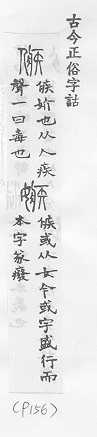 古今正俗字詁
㑵
㑵妎也从人疾
聲一曰毒也
嫉
㑵或从女今或字盛行而
本字廢
(P156)